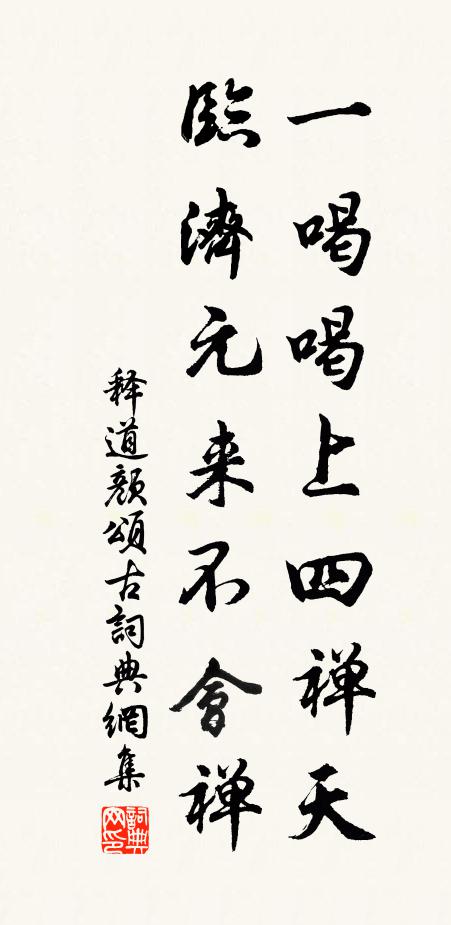 一喝喝上四禅天
臨濟元来不會禅
释道颜頌古詞典網集
詞典网印